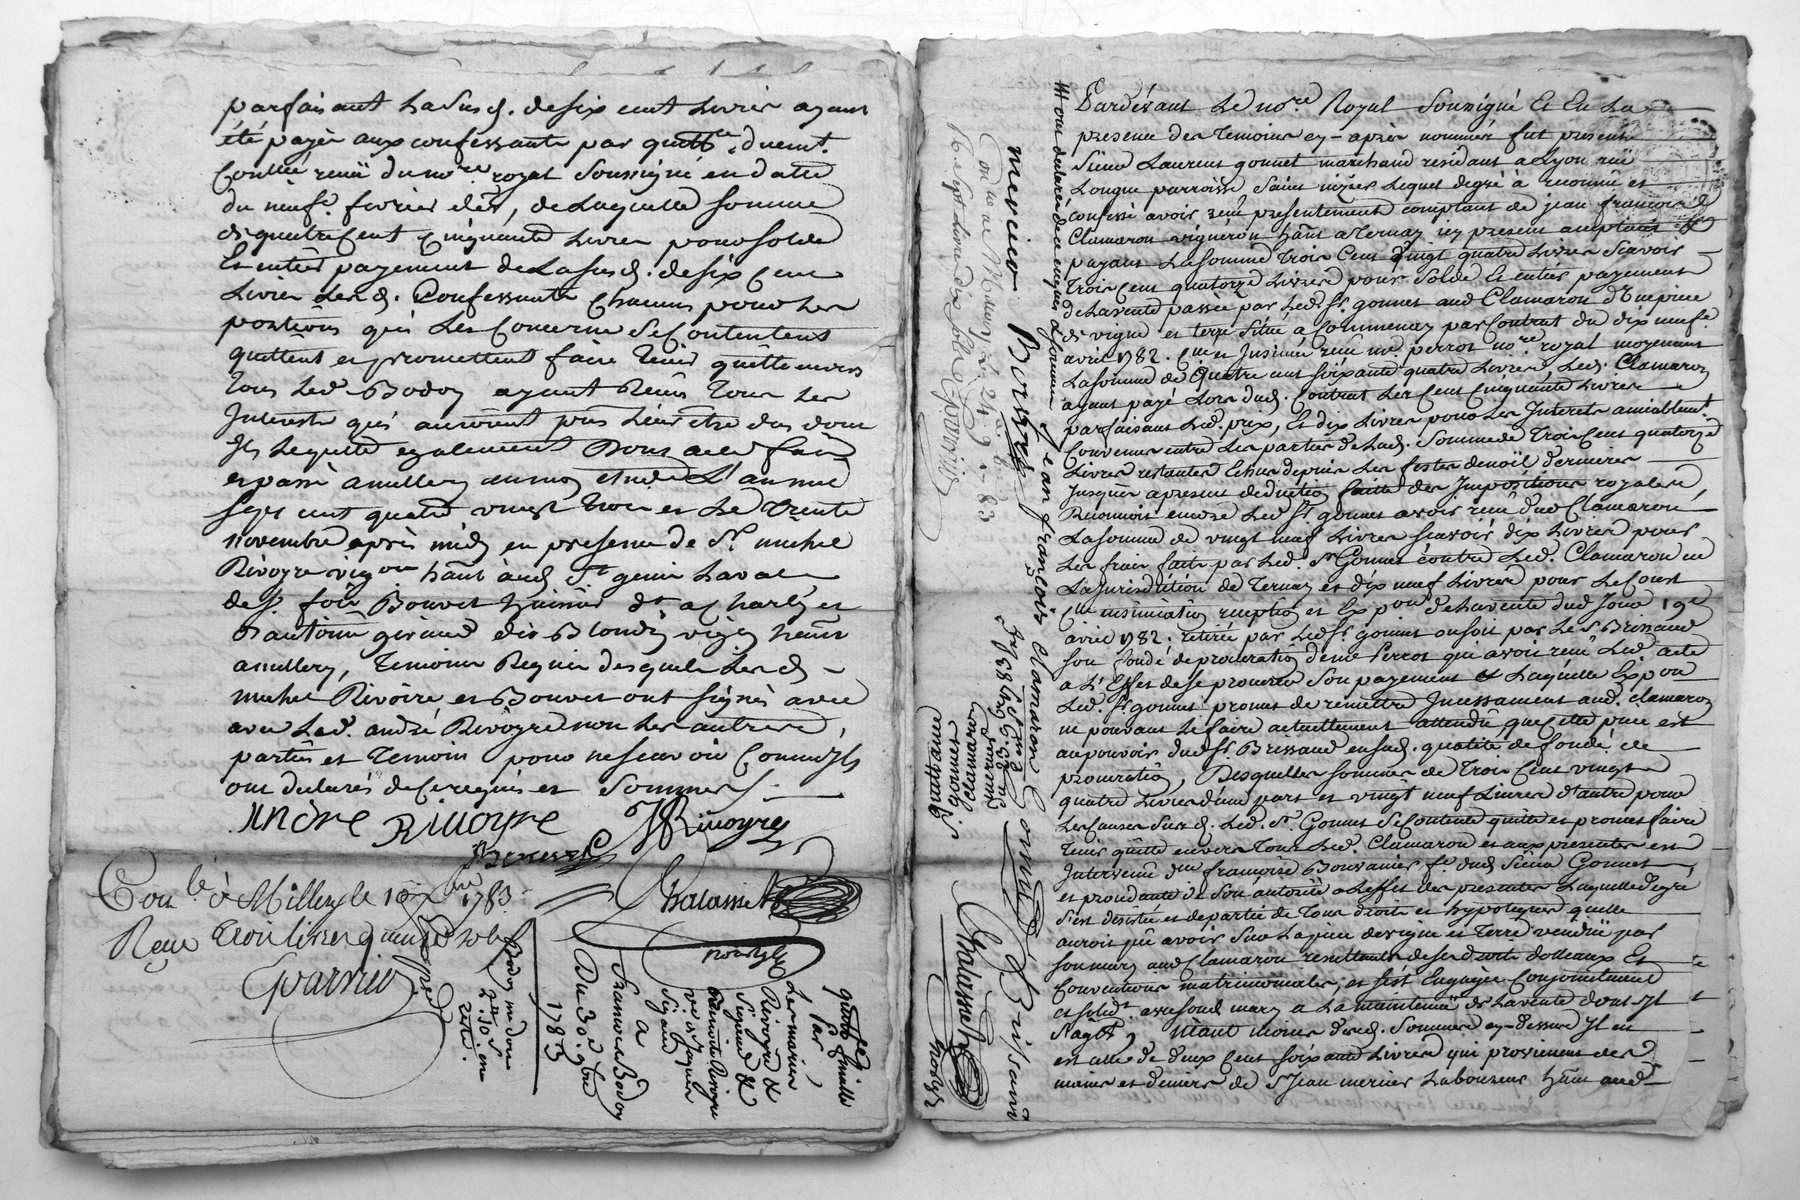 parfaisant La Susd. de six cent Livres ayant
été payée aux confessants par quittce. duemt.
Conllée reçuë du nore. royal Soussigné en datte
du neufe. fevrier der, de Laquelle somme
de quatre Cent Cinquante Livres pour solde
Et entier payement de La susd. de six Cent
Livres Lesd. Confessants Chacuns pour Les
portions qui Les Concerne Se Contentent
quittent et promettent faire tenir quitte envers
tous Led. Bodoy ayant Reçûs tous Les
Interets qui auroient pus Lieu être dus dont
Ils Le quitte egalement Dont acte fait
et passé a millery en mon etude L'an mil
sept cent quatre vingt trois et Le trente
novembre après midy en presence de Sr. michel
Rivoyre vigon hant. audt. St. genis Laval
de Sr. Bouvet huissier dt. a Charly et
d'antoine giraud dit Blondin vigon hant
a millery, temoins Requis desquels Lesd.
michel Rivoire et Bouvet ont signés avec
avec Led. andré Rivoyre non Les autres
parties et temoin pour ne Sçavoir Comme Ils
ont declarés de Ce requis et Sommés
André Rivoyre JM Rivoyre
Bouvet
Chalasset
nore. Ryl
Conlé. à Millery le 10 Xbre 1783
Reçu trois livres quinze sols
Guarnier
quittce. finalle
par
Les mariés
Rivoyre &
Sigaud &
benoite Rivoyre
vve. de Jaques
Sigaud
a
francois Bodoy
Du 30. 9bre
1783
Bodoy m'a donné
2tt. 10 s. en
reste.
mercier
Contlé a Millery Le 24 9bre. 83
Reçu sept Livres dix sols Guarnier
quittance
gonnet
Clamaron
mercier
du 23. 9bre
1783
Chalasset nore. Ryl
Jean françois Clamaron Gonnet Brissaud
Pardevant Le nore. Royal Soussigné Et En La
presence des temoins cy-après nommés fut present
Sieur Laurent gonnet marchand residant a Lyon ruë
Longue parroisse Saint nizier Lequel degré à reconnu et
confessé avoir reçu presentement comptant de jean francois
Clamaron vigneron hant a ternay icy present acceptant et
payant La somme trois Cent Vingt quatre Livres Scavoir
trois Cent quatorze Livres pour Solde Et entier payement
de La vente passée par Led. Sr. gonnet aud. Clamaron d'Une piece
de vigne et terre Situé à Commenay par Contrat du dix neufe.
avril 1782. Insinué reçu me. perrot nore. royal moyenant
La somme de Quatre cent soixante quatre Livres, Led. Clamaron
ayant payé Lors dud. Contrat Les Cent Cinquante Livres
parfaisant Led. prix, Et dix Livres pour Les Interets amiablemt.
Convenus entre Les parties de Lad. Somme de trois Cent quatorze
Livres restantes Echus depuis Les festes de noël dernieres
Jusqu'a a present deduction faitte des Impositions royales,
Reconnoit encore Led. Sr. gonnet avoir reçû dud. Clamaron
La somme de vingt neuf Livres scavoir dix Livres pour
Les frais faits par Led. Sr. Gonnet contre Led. Clamaron en
La jurisdiction de Ternay et dix neuf Livres pour Le Cout
insinuation reception et Expon. de La vente dud. Jour 19e
avril 1782. retirée par Led. Sr. gonnet ou soit par Le S. Brissaud
son fondé de procuration de me. Perrot qui avoit reçu Led. acte
a L'Effet de se procurer Son payement et Laquelle Expon
Led. Sr. gonnet promet de remettre Incessament aud. Clamaron
ne pouvant Le faire actuellement attendû que Cette piece est
au pouvoir dud. Sr. Brissaud en sad. qualité de fondé de
procuration, Desquelles sommes de trois Cent vingt
quatre Livres d'une part et vingt neuf Livres d'autre pour
Les causes Susd. Led. Sr. Gonnet Se Contente quitte et promet faire
tenir quitte envers tous Led. Clamaron et aux presentes est
Intervenuë françoise Bonvanier fe. dud. Sieur Gonnet
et procedante de Son autorité a Leffet des presentes Laquelle degré
s'est desistée et departie de tous droits et hypoteques qu'elle
auroit pû avoir Sur La piece de vigne et Terre venduë par
son mary aud. Clamaron resultants de ses droits dotteaux Et
Conventions matrimonialles, et s'est Engagée Conjointement
et solidt. avec sond. mary a La maintenuë de La vente dont Il
s'agit, néant moins desd. Sommes cy-dessus Il en
est celle de deux Cent soixante Livres qui proviennent des
mains et deniers de Sr. Jean mercier Laboureur hant aud.